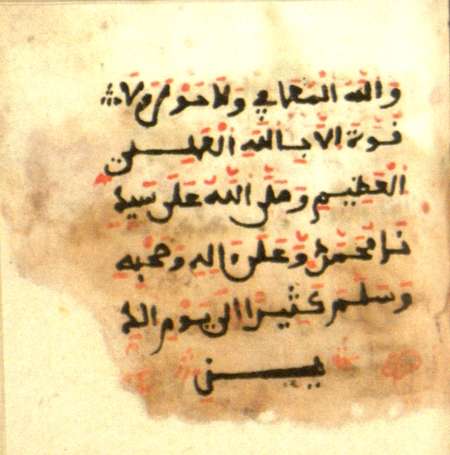 والله المعافي ولا حول ولا
قوة الا بالله العلي
العظيم وصلى الله على سيد
نا محمد وعلى اله وصحبه
وسلم كثيرا الى يوم الد
ين